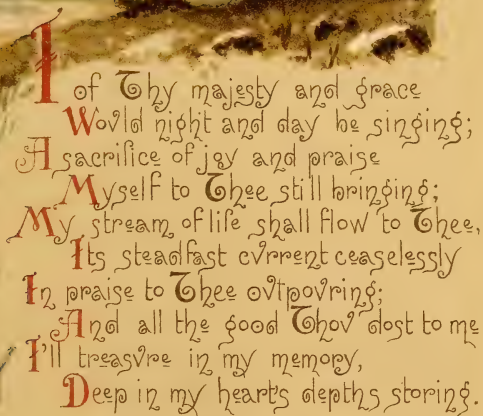 I of Thy majesty and grace
Wovld night and day be singing;
A sacrifice of joy and praise
Myself to Thee still bringing;
My stream of life shall flow to Thee,
Its steadfast cvrrent ceaselessly
In praise to Thee ovtpovring;
And all the good Thov dost to me
I'll treasvre in my memory,
Deep in my heart's depths storing.